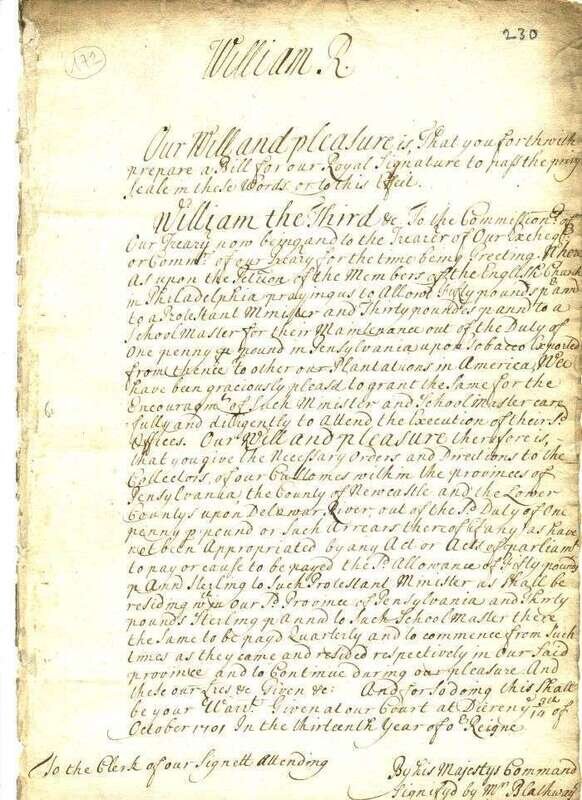 230
172
William R.
Our Will and pleasure is, That you forthwith
prepare a Bill for our Royal Signature to pass the privy
seale in these Words or to this Effect.
William the Third &c To the Commissionrs of
Our Treary now being and to the Treārer of Our Excheqr
or Commrs of our Treary for the time being Greeting. Where
as upon the Petition of the Members of the English Church
in Philadelphia praying us to Allow Fifty pounds p annū
to a Protestant Minister and Thirty pounds p annū to a
School Master for their Maintenance out of the Duty of
One penny p pound in Pensylvania upon Tobacco Exported
from thence to other our Plantations in America, Wee
have been graciously pleasd to grant the same for the
Encouragmt of Such Minister and School Master care
fully and diligently to attend the Execution of their Sd
Offices. Our Will and pleasure therefore is,
that you give the Necessary Orders and Directions to the
Collectors, of our Customes within the provinces of
Pensylvania, the County of Newcastle and the Lower
Countys upon Delawar River, out of the Sd Duty of One
penny p pound or Such Arrears thereof if any as have
not been Appropriated by any Act or Acts of parliamt
to pay or cause to be payed the Sd Allowance of Fifty pounds
p Ann Sterling to Such Protestant Minister as Shall be
residing wthin Our Sd Province of Pensylvania and Thirty
pounds Sterling p Annū to Such School Master there
the Same to be payd Quarterly and to commence from Such
times as they came and resided respectively in Our Said
province and to Continue during our pleasure And
these our Lres &c Given &c: And for So doing this Shall
be your Warrt. Given at our Court at Dieren ye 14th of
October 1701 In the thirteenth Year of or Reigne
To the Clerk of our Signett attending
By his Majestys Command
Signifyd by Mr Blathwayt